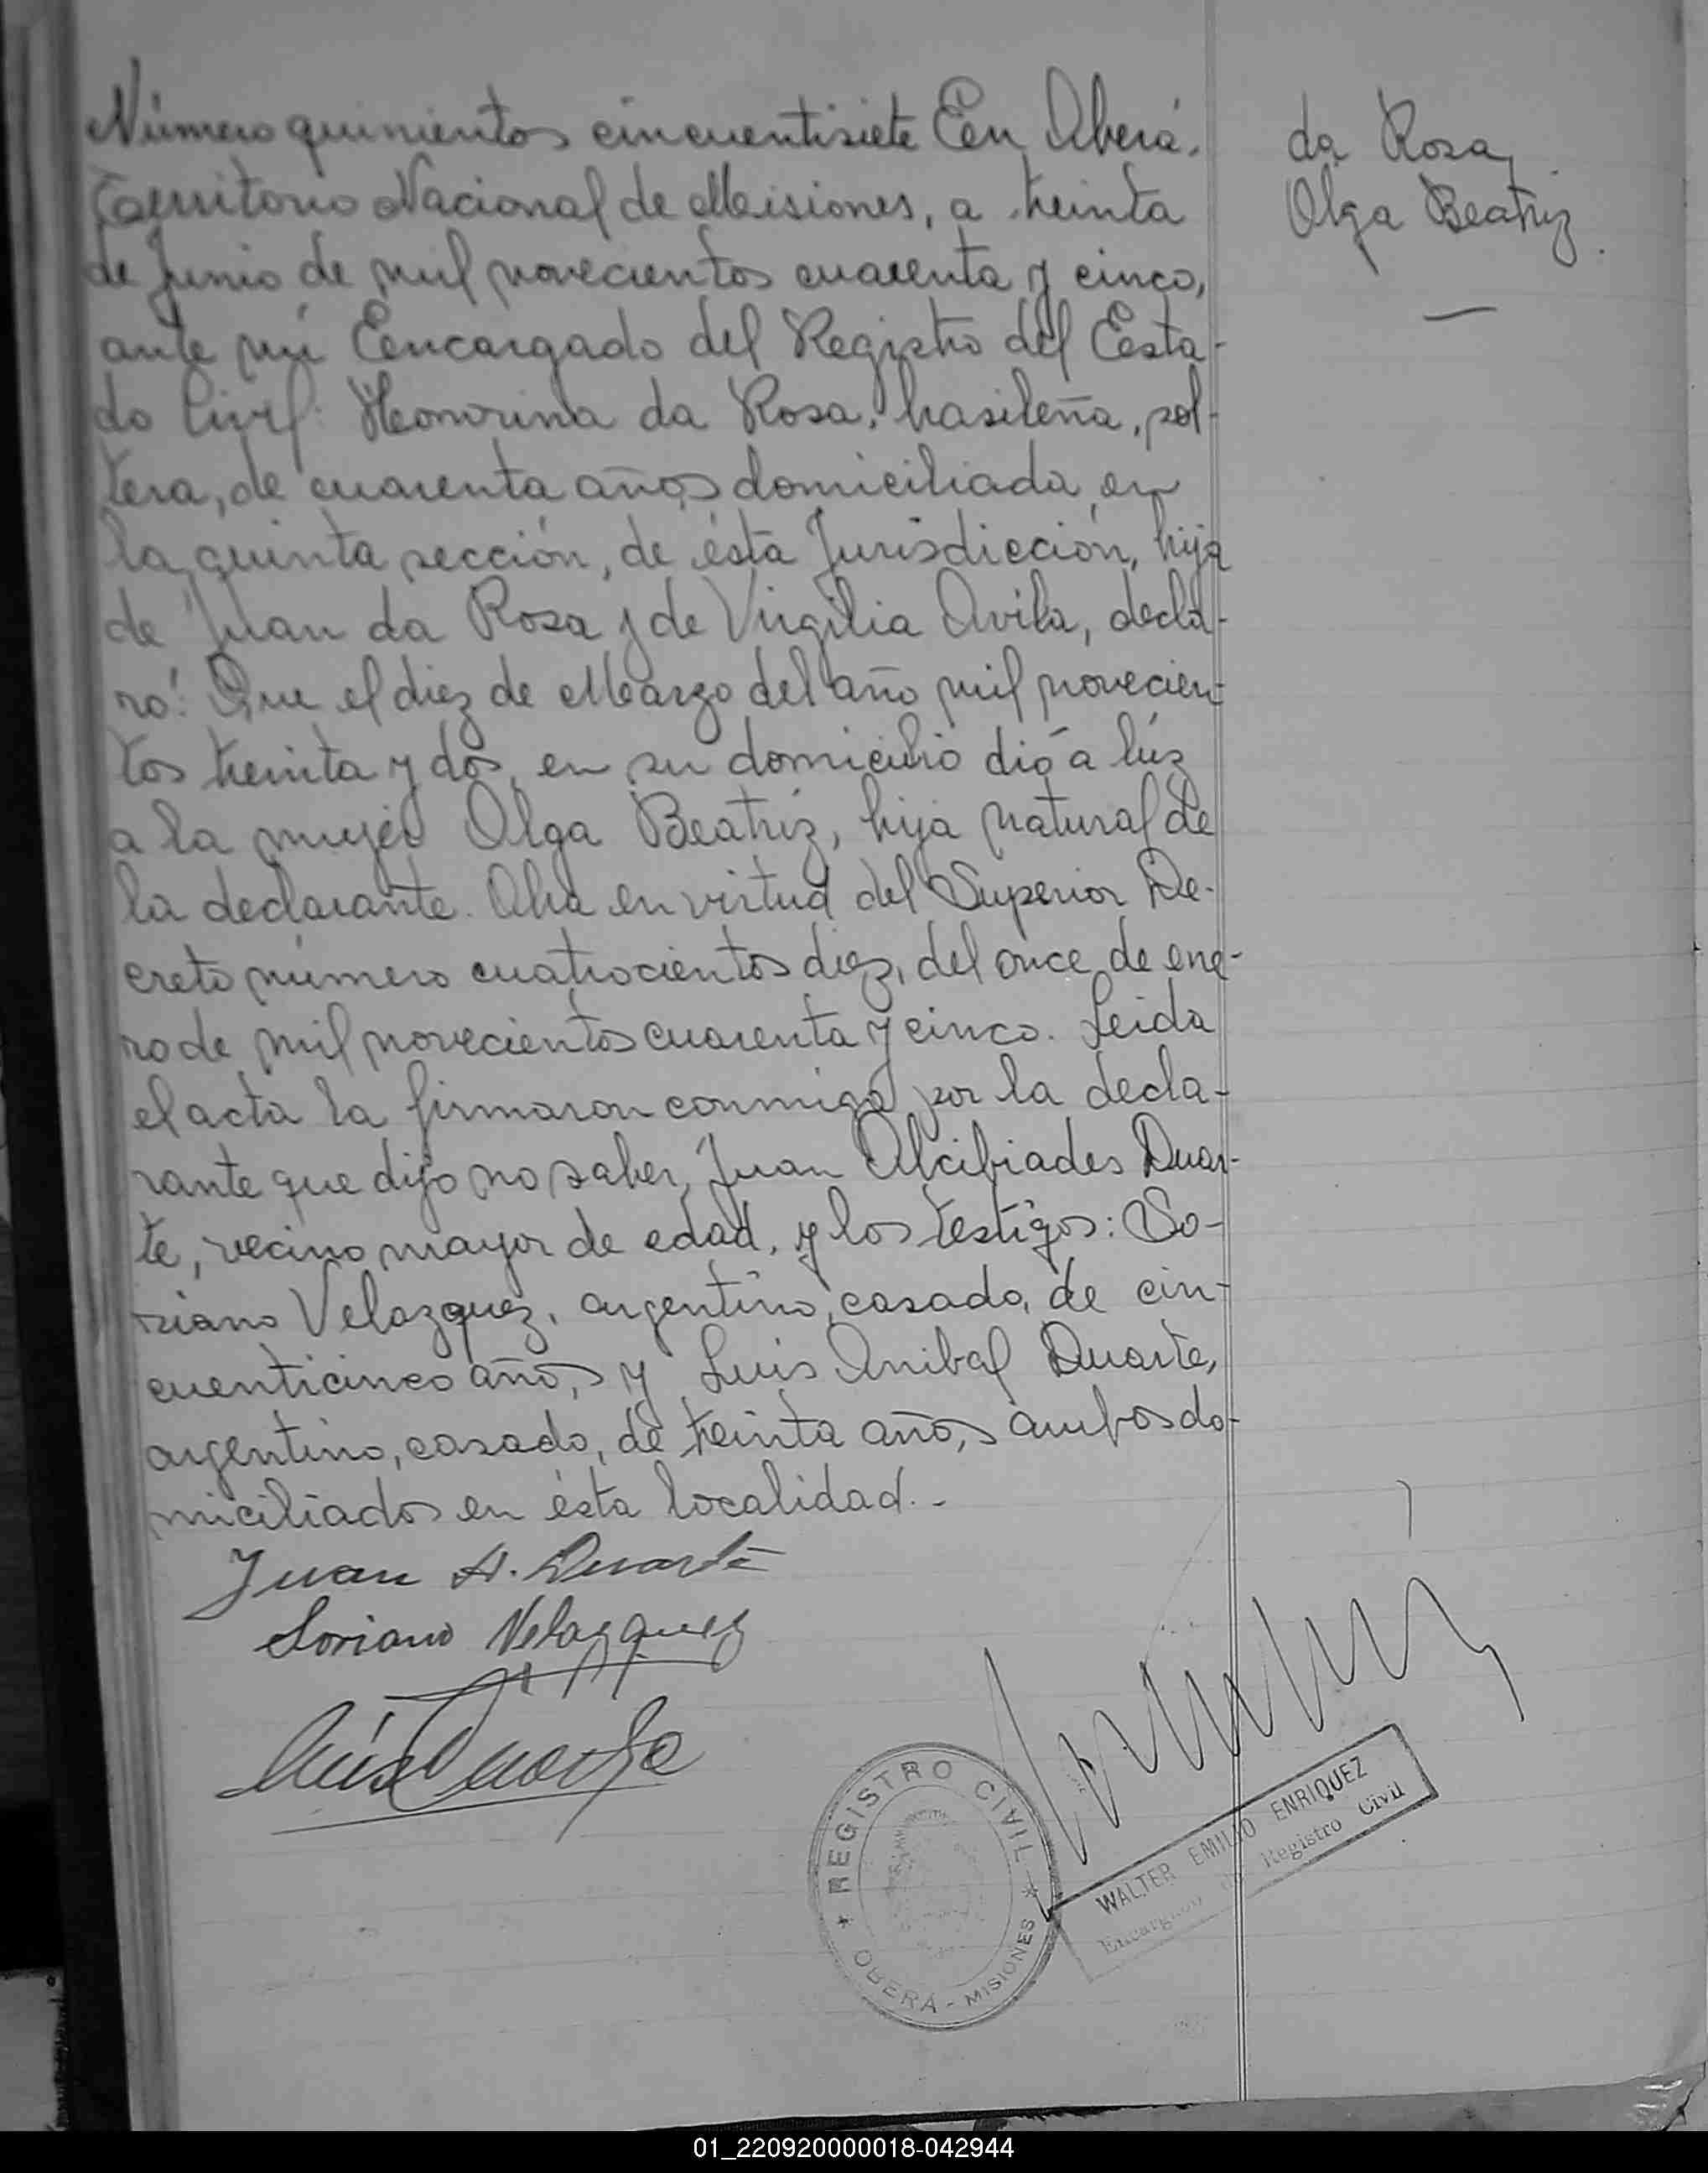 Número quinientos cincuentisiete En Oberá,
Territorio Nacional de Misiones, a treinta
de Junio de mil novecientos cuarenta y cinco,
ante mí Encargado del Registro del Esta-
do Civil: Honorina da Rosa, brasileña, sol-
tera, de cuarenta años domiciliada en
la quinta sección, de ésta Jurisdicción, hija
de Juan da Rosa y de Virgilia Avila, decla-
ró: Que el diez de Marzo del año mil novecien-
tos treinta y dos, en su domicilio dió a lúz
a la mujer Olga Beatriz, hija natural de
la declarante. Obra en virtud del Superior De-
creto número cuatrocientos diez, del once de ene-
ro de mil novecientos cuarenta y cinco. Leida
el acta la firmaron conmigo por la decla-
rante que dijo no saber, Juan Alcibiades Duar-
te, vecino mayor de edad, y los testigos: So-
riano Velazquez, argentino, casado, de cin-
cuenticinco años, y Luis Anibal Duarte,
argentino, casado, de treinta años, ambos do-
miciliados en ésta localidad.-
da Rosa,
Olga Beatriz
Juan A. Duarte
Soriano Velazquez
Luis Duarte
REGISTRO CIVIL
OBERÁ - MISIONES
WALTER EMILIO ENRIQUEZ
Encargado de Registro Civil
01_220920000018-042944